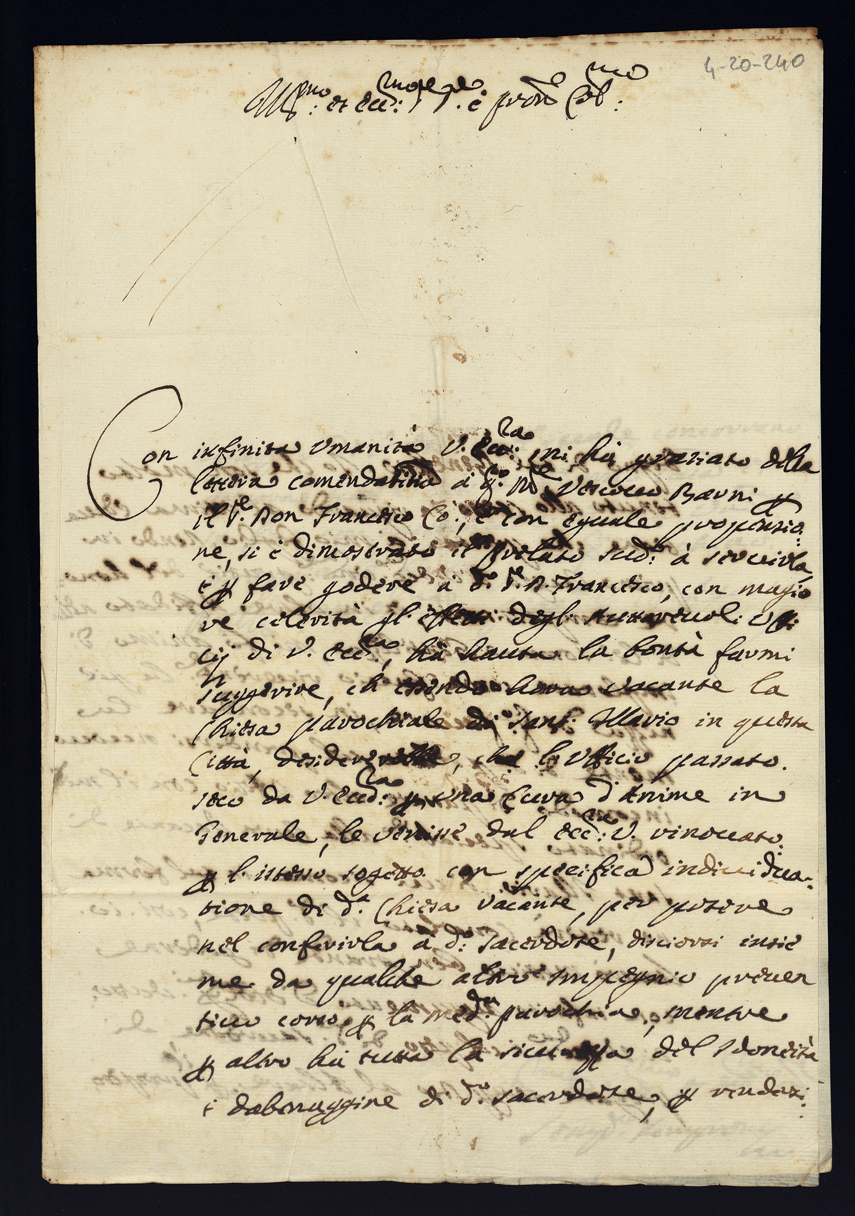 4-20-240
Ill.mo et Ecc.: è pron Col:
Con infinita Vmanità V. Ecc.za mi hà graziato della
lettera comendatitia à q.o M. Vescovo Barni p
il P.e Don Francesco Co., è con eguale propensio:
ne, si è dimostrato il Prelato sud.o à servirla,
è p fare godere a d.o P.e D. Francesco, con magio
re celerità gl'effetti degl'Auttorevoli Vffi
cij di V. Ecc.za, hà hauta la bontà farmi
suggerire, ch'essendo hora vacante la
Chiesa parochiale di Sant'Illario in questa
Città, desidererebbe, che l'Vfficio passato
seco da V. Ecc.za p una Cura d'Anime in
Generale, le venisse dal Ecc.za V. rinovato
p l'istesso sogetto con specifica individua:
tione di d.a Chiesa vacante, per potere
nel conferirla à d.o Sacerdote, disciorsi insie
me da qualche altro Impegnio preven
tivo corso p la med.ma parochia, mentre
p altro hà tutta la sicurezza del Idoneità
è dabenaggine di d.o Sacerdote, p rendersi